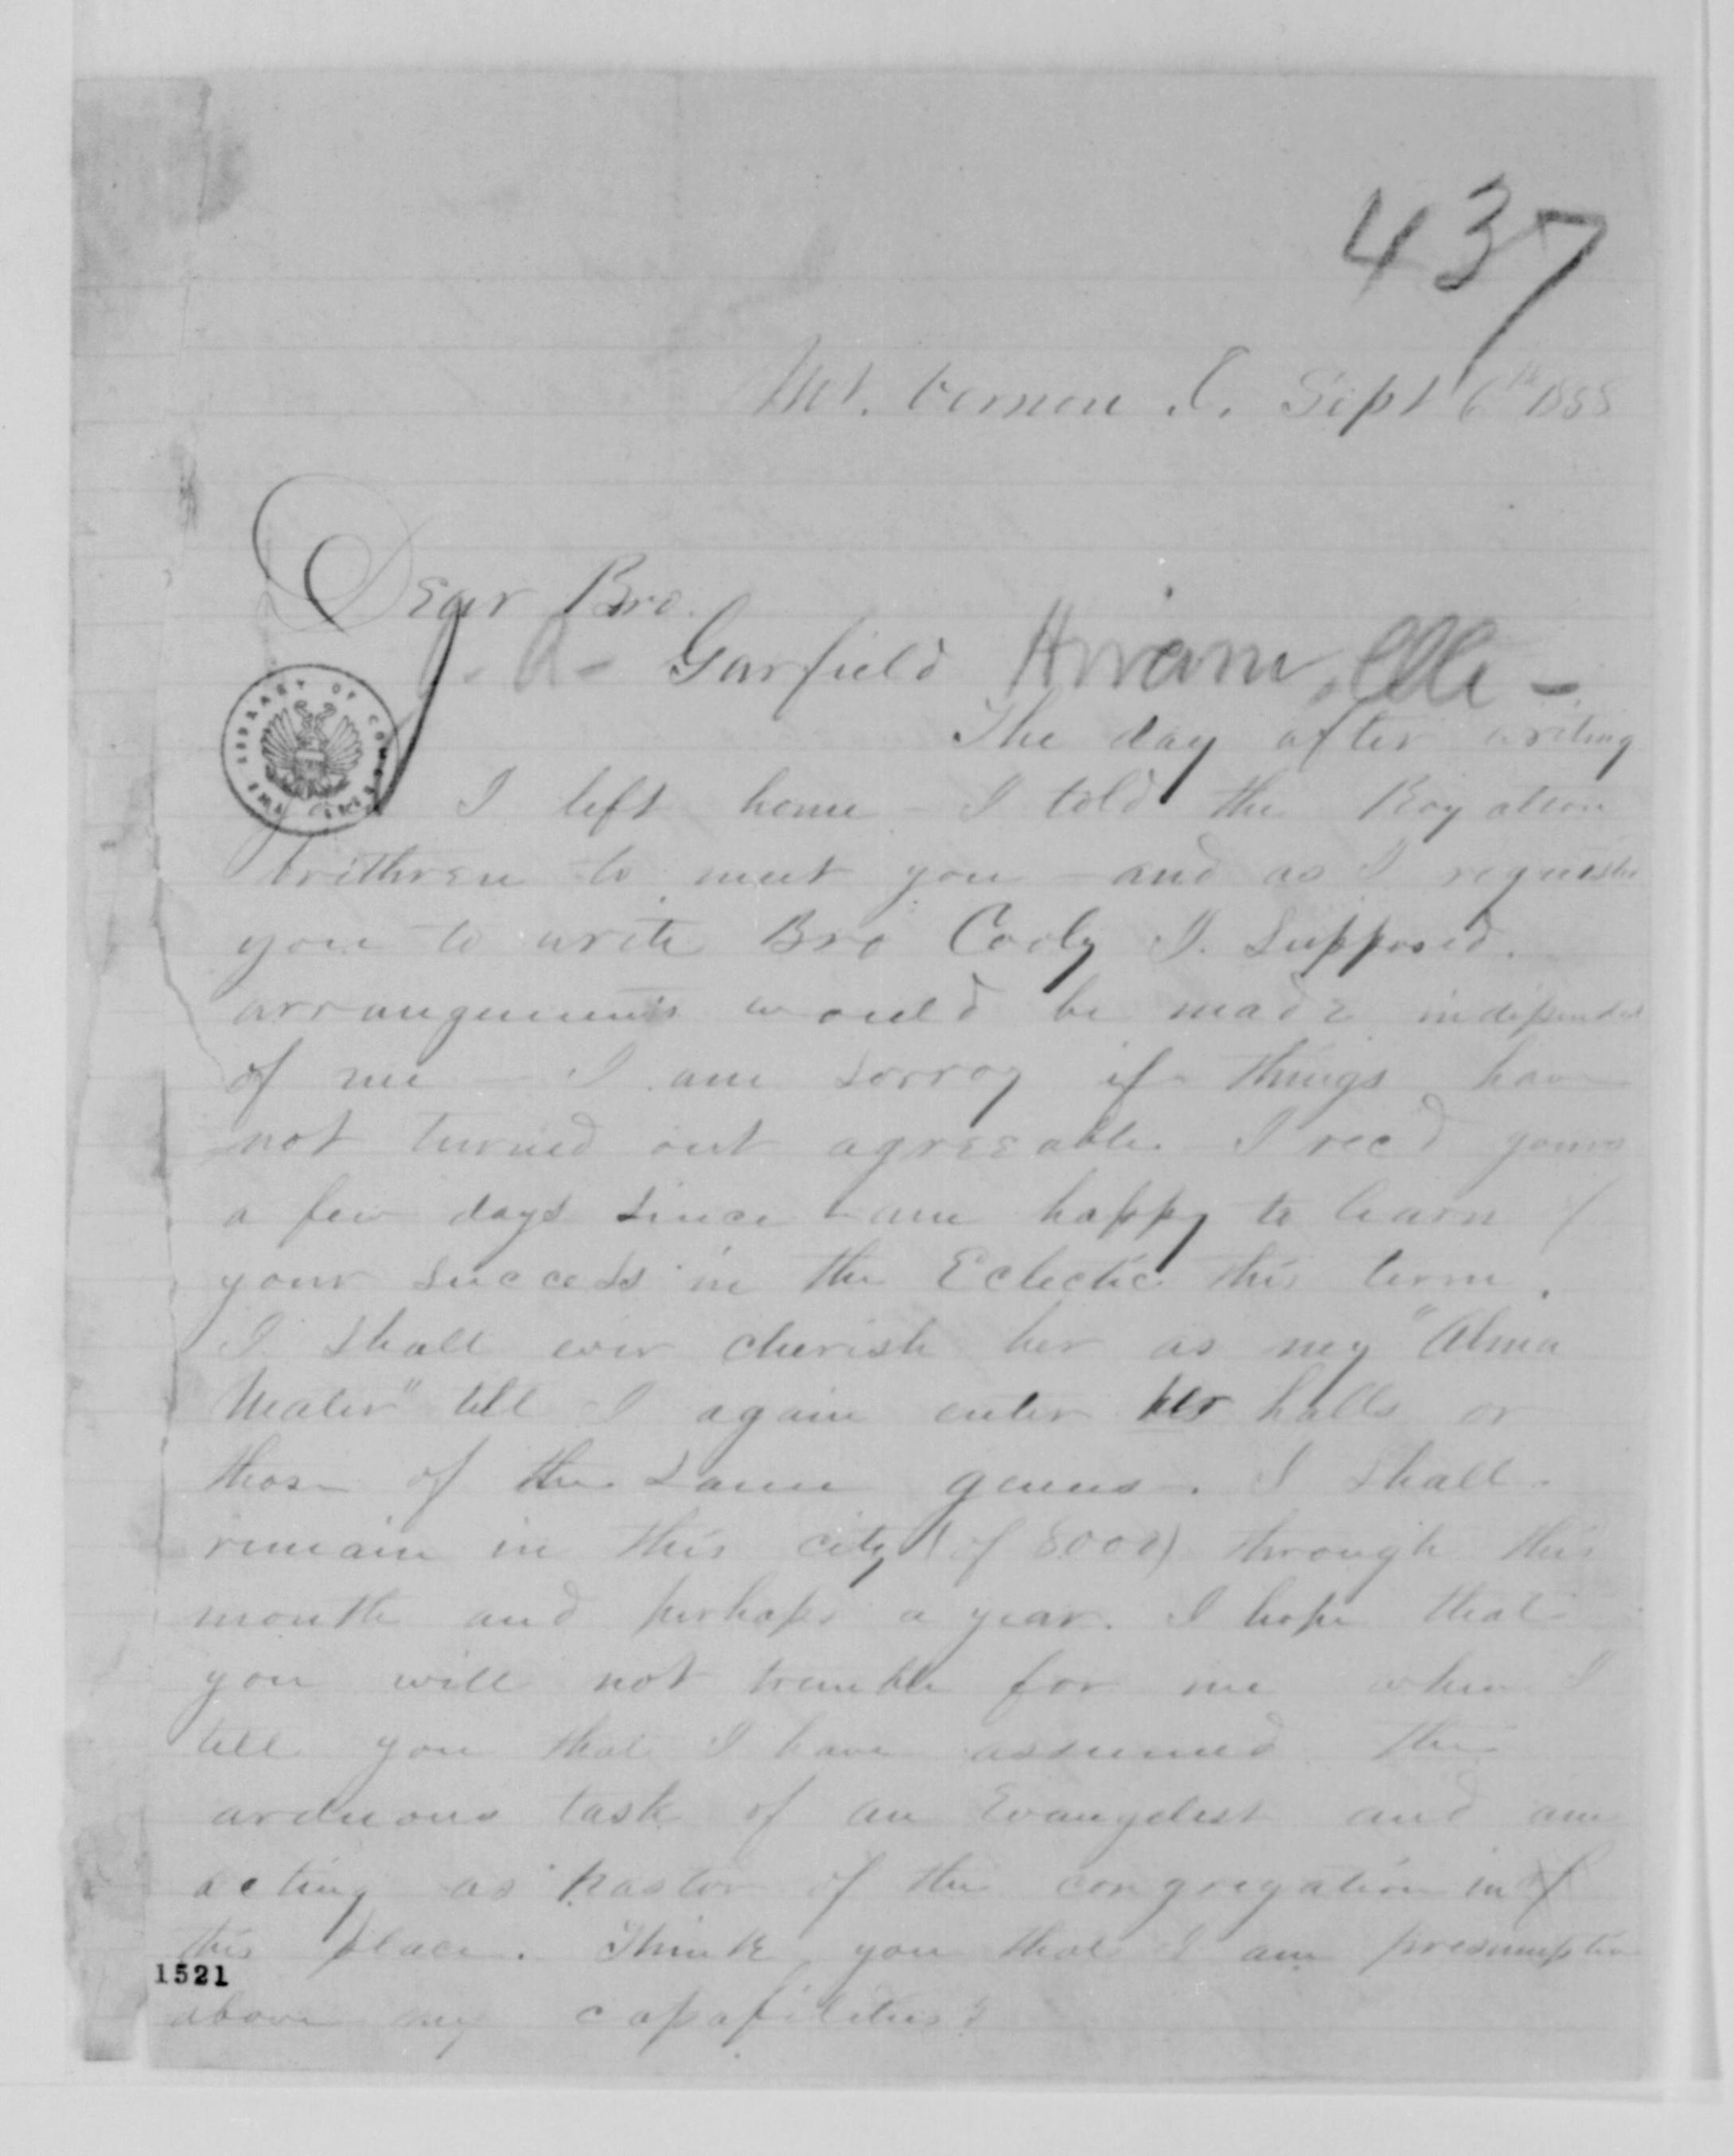 437
Mt. Vernon O. Sept 6th 1858
Dear Bro.
J. A. Garfield Hiram,
The day after writing
I left home - I told the Royalton
brithren to meet you - and as I requested
you to write Bro Cooly I supposed.
arrangements would be made independent
of me - I am sorry if things have
not turned out agreeable I rec'd yours
a few days since & am happy to learn of
your success in the Eclectic this term.
I shall ever cherish her as my "Alma
Mater" till I again enter her halls or
those of the same genus. I shall
remain in this city (of 8000) through this
month and perhaps a year. I hope that
you will not tremble for me when I
tell you that I have assumed the
arduous task of an Evangelist and am
acting as Pastor of the congregation in
this place. Think you that I am presumptive
above my capabilities?
1521
THE LIBRARY OF CONGRESS